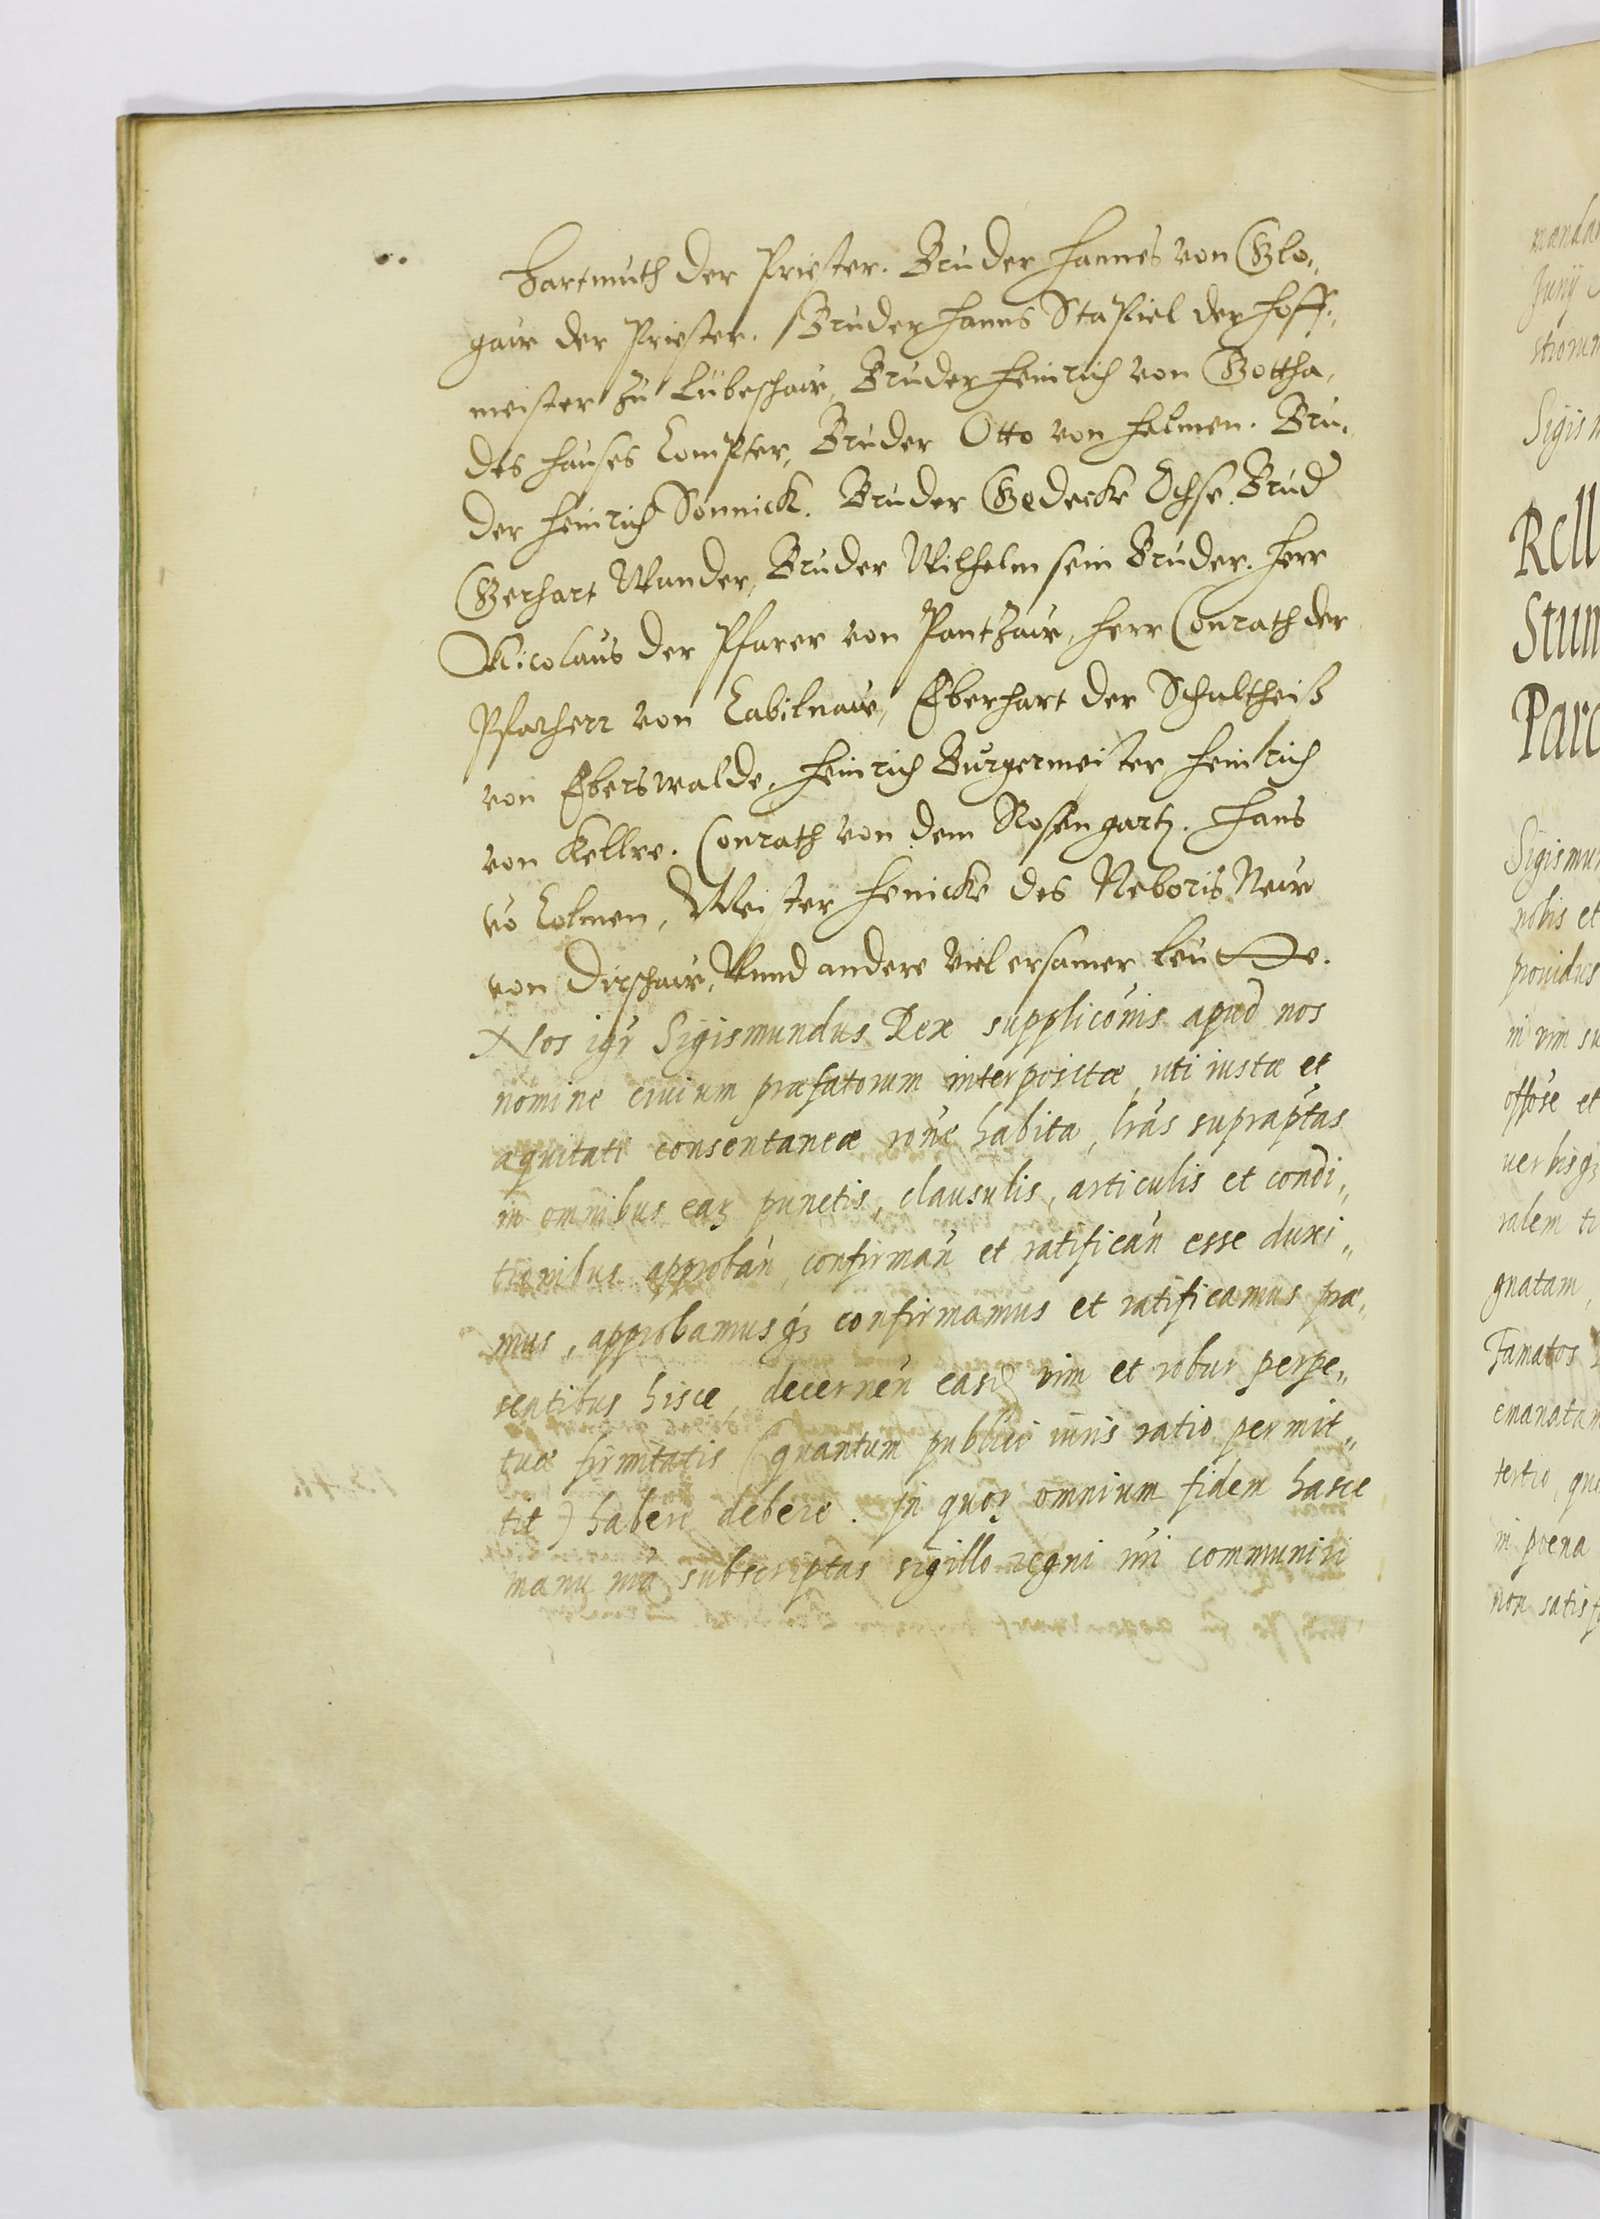 Hartmuth der Priester. Bruder Hannes von Glo„
gaw der Priester. Bruder Hanns Stapiel der Hoff„
meister zu Lübeschaw, Bruder Heinrich von Gottha,
des Hauses Compter, Bruder Otto von Helmen. Bru„
der Heinrich Sonnick. Bruder Gedecke Ochse. Brud
Gerhart Wander, Bruder Wilhelm sein Bruder. Herr
Nicolaus der Pfarer von Pantzaw, Herr Conrath der
Pfarherr von Cabilnaw, Eberhart der Schultheiß
von Eberswalde, Heinrich Burgermeister Heinrich
von Kellre. Conrath von dem Rosengartē. Hans
vō Colmen, Meister Henicke des Neboris New
von Dirschaw, Vnnd andere viel ersamer Leutte.
Nos igr̄ Sigismundus Rex supplicōnis apud nos
nomine ciuium præfatorum interpositæ, uti iustæ et
æquitati consentaneæ rōne habita, lrās suprap̄tas
in omnibus eaꝝ punctis, clausulis, articulis et condi„
tionibus approbān, confirmān et ratificān esse duxi„
mus, approbamusqꝫ confirmamus et ratificamus præ„
sentibus hisce, decernēn easd vim et robur perpe„
tuæ firmitatis (quantum publici iuris ratio permit„
tit) habere debere. In quoꝝ omnium fidem hasce
manu nr̄a subscriptas sigillo regni nr̄i communiri
mandar
Junij
striorum
Sigism
Rell
Stum
Parc
Sigismun
nobis et
prouidus
in vim su
offōse et
uerbisqꝫ
ralem te
gnatam,
Famatos
emanatam
tertio, que
in poena
non satisf